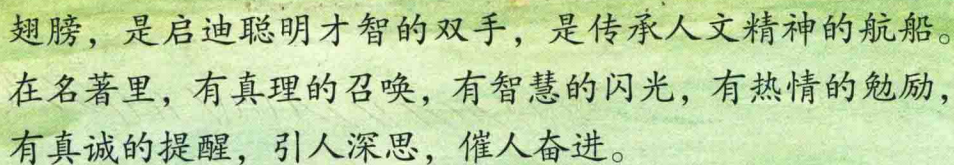 翅膀，是启迪聪明才智的双手，是传承人文精神的航船。
在名著里，有真理的召唤，有智慧的闪光，有热情的勉励，
有真诚的提醒，引人深思，催人奋进。